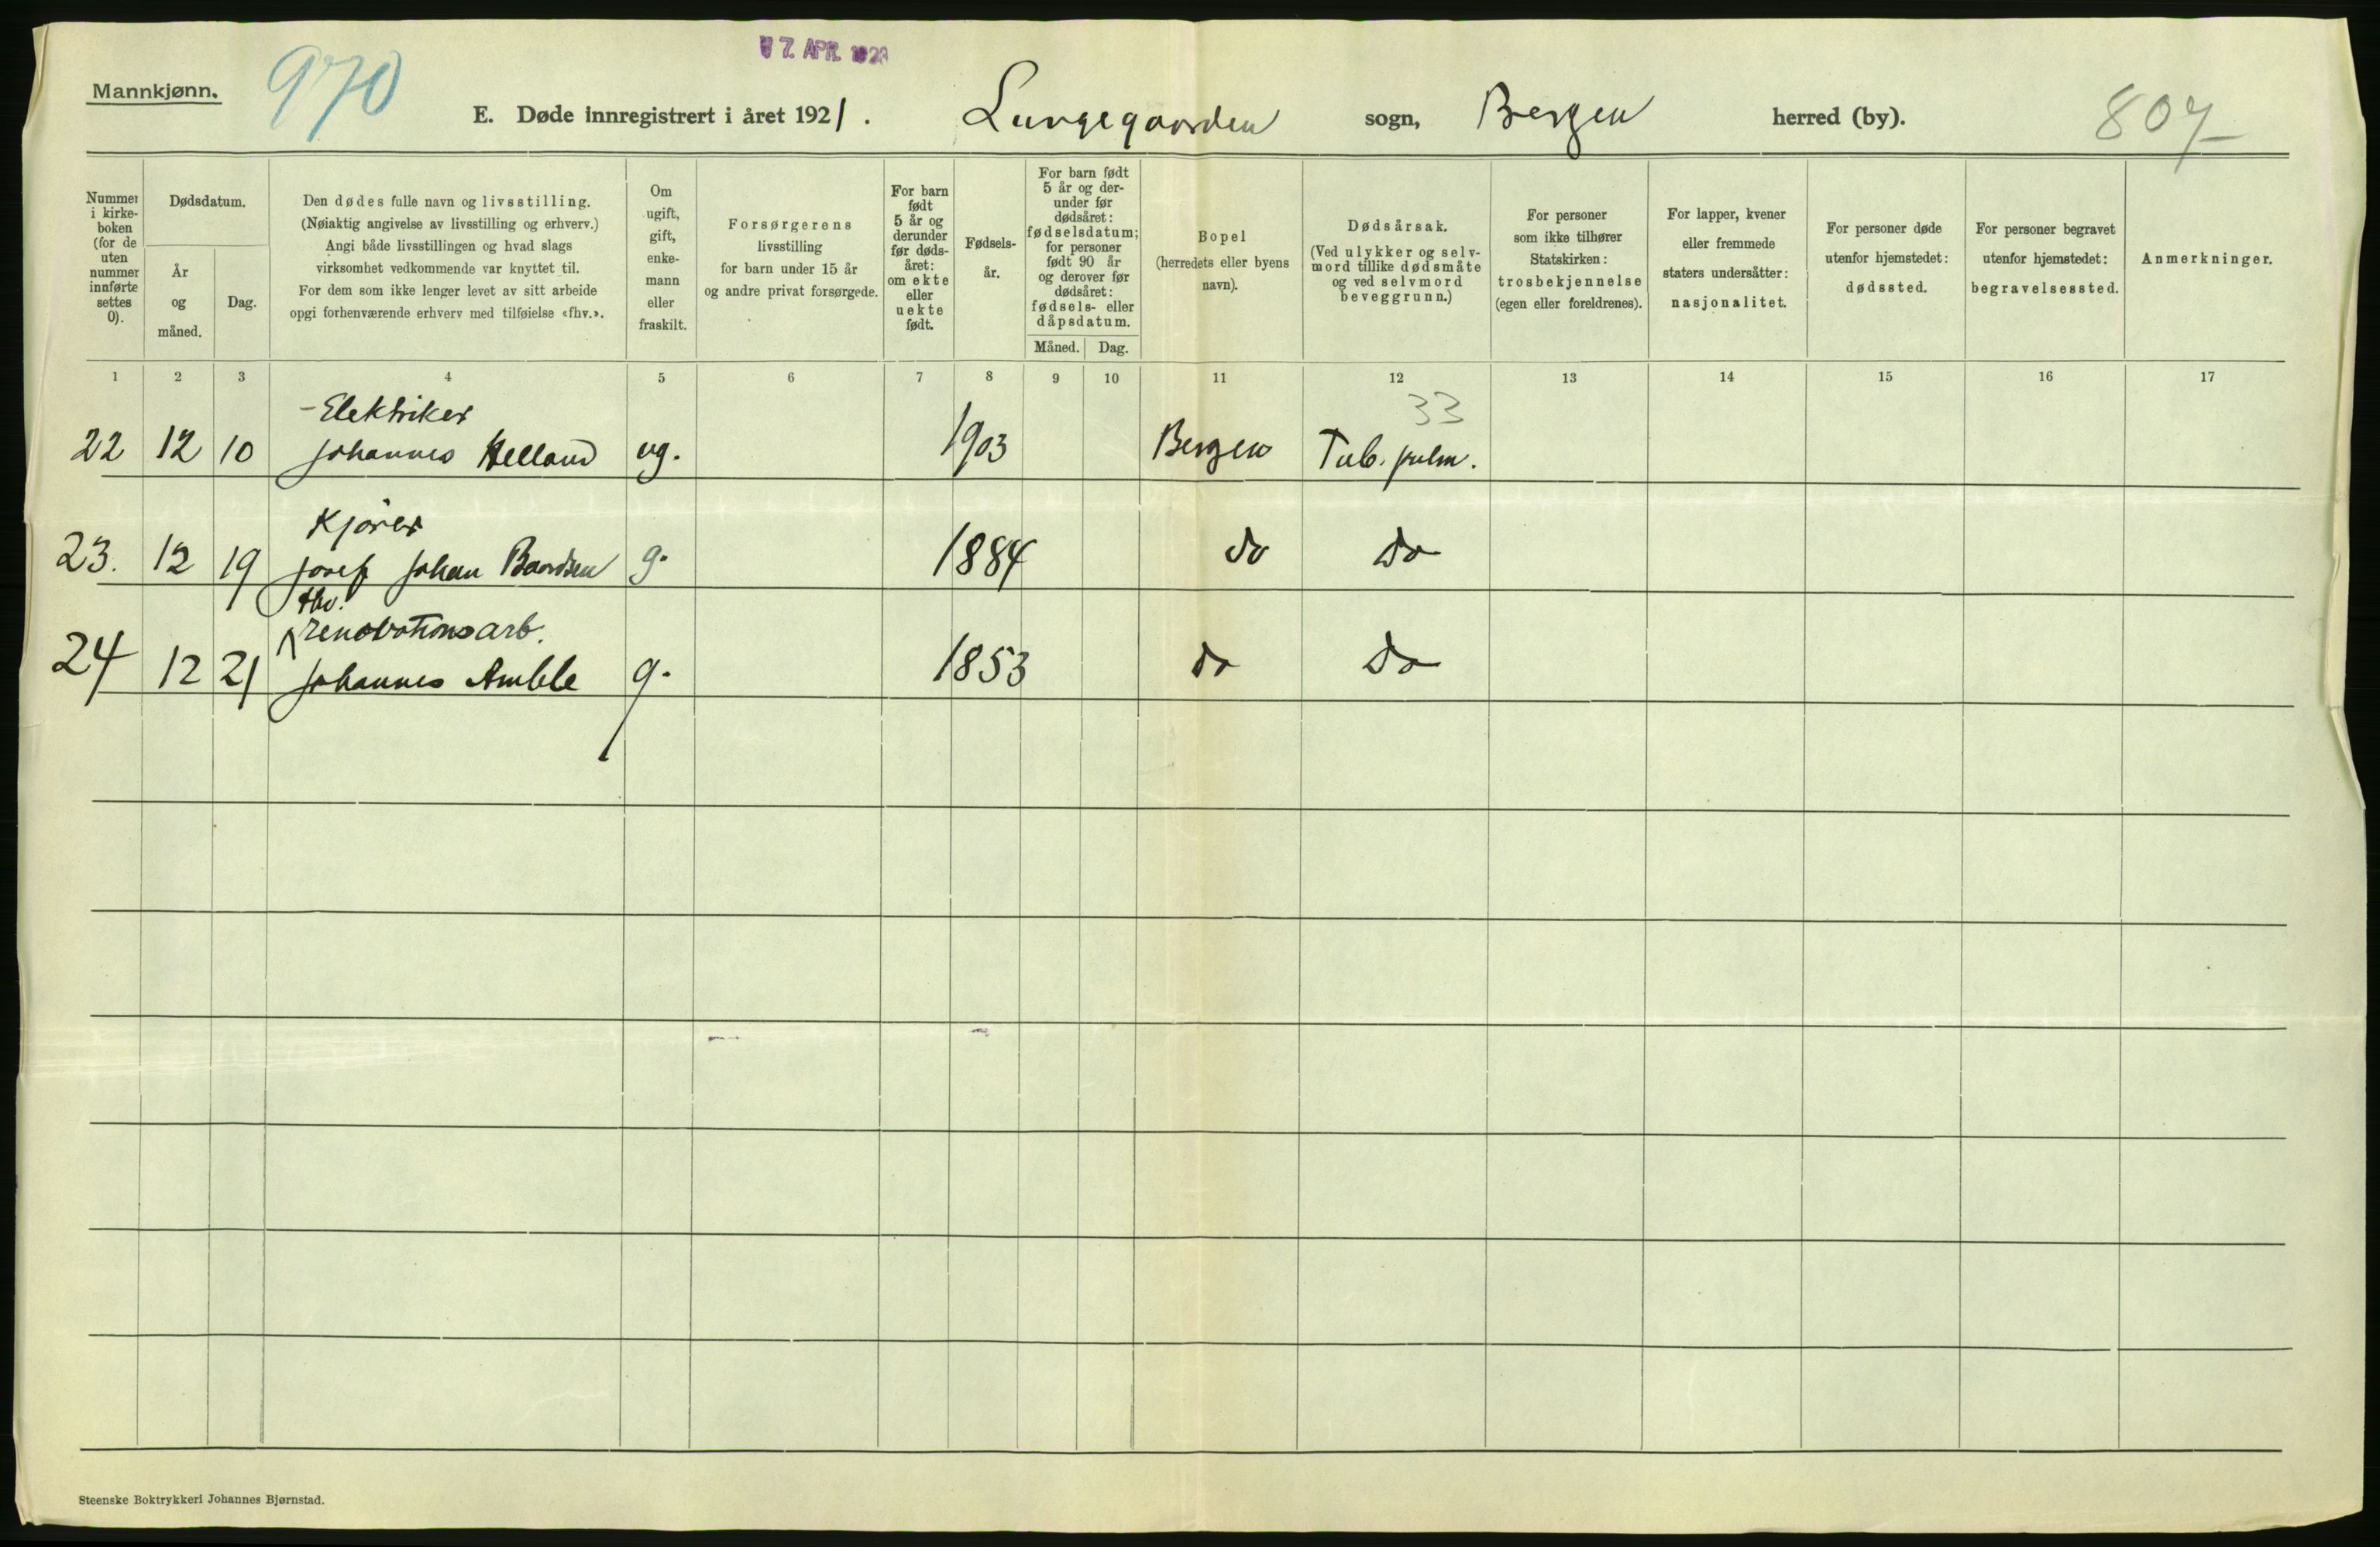 7. APR. 192
Mannkjønn.
970
E. Døde innregistrert i året 1921. Lungegaarden sogn, Bergen herred (by).
807
Nummer i kirkeboken (for de uten nummer innførte settes 0).
Dødsdatum.
År og måned.
Dag.
Den dødes fulle navn og livsstilling.
(Nøiaktig angivelse av livsstilling og erhverv.)
Angi både livsstillingen og hvad slags
virksomhet vedkommende var knyttet til.
For dem som ikke lenger levet av sitt arbeide
opgi forhenværende erhverv med tilføielse «fhv.».
Om ugift, gift, enkemann eller fraskilt.
Forsørgerens
livsstilling
for barn under 15 år
og andre privat forsørgede.
For barn født 5 år og derunder før dødsåret: om ekte eller uekte født.
Fødselsår.
For barn født 5 år og derunder før dødsåret: fødselsdatum; for personer født 90 år og derover før dødsåret: fødsels- eller dåpsdatum.
Måned. Dag.
Bopel
(herredets eller byens
navn).
Dødsårsak.
(Ved ulykker og selvmord tillike dødsmåte
og ved selvmord
beveggrunn.)
For personer
som ikke tilhører
Statskirken:
trosbekjennelse
(egen eller foreldrenes).
For lapper, kvener
eller fremmede
staters undersåtter:
nasjonalitet.
For personer døde
utenfor hjemstedet:
dødssted.
For personer begravet
utenfor hjemstedet:
begravelsessted.
Anmerkninger.
1 2 3 4 5 6 7 8 9 10 11 12 13 14 15 16 17
Elektriker
33
22 12 10 Johannes Helland ug. 1903 Bergen Tub. pulm.
Kjører
23. 12 19 Josef Johan Baardsen g. 1884 do do
fhv.
renovationsarb.
24 12 21 Johannes Amble g. 1853 do do
Steenske Boktrykkeri Johannes Bjørnstad.